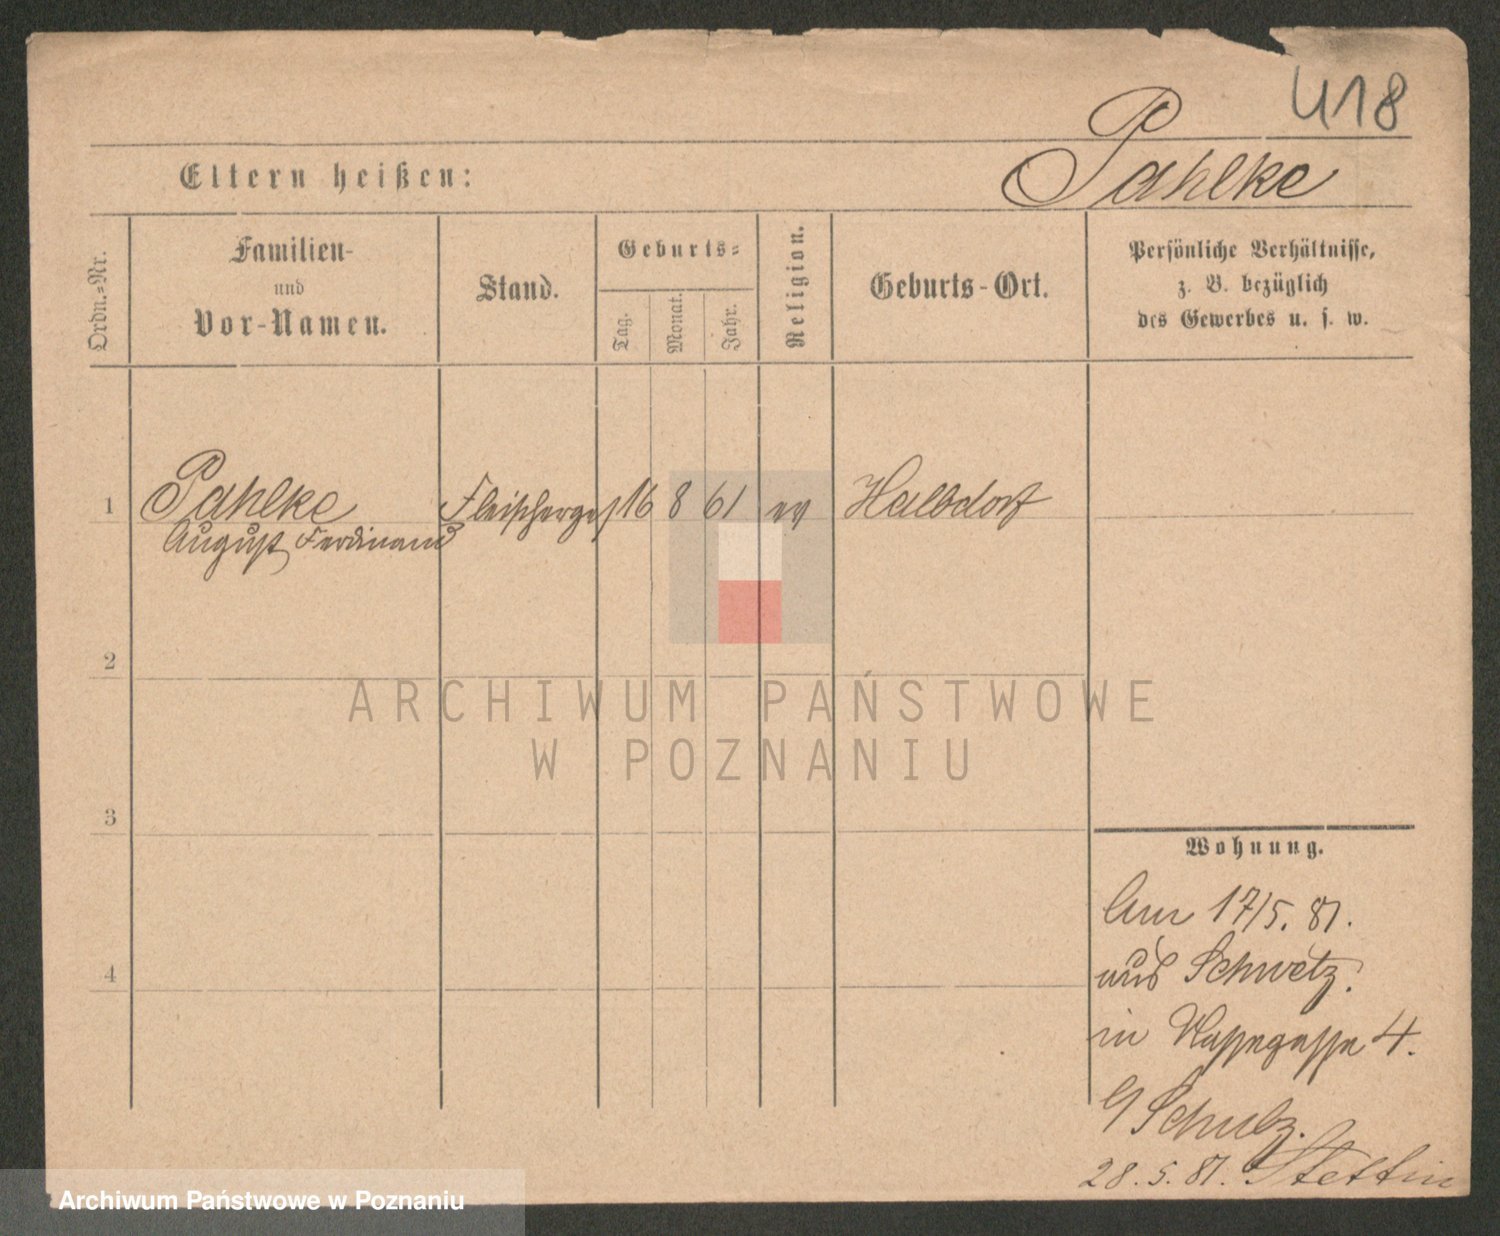 418
Pahlke
Eltern heißen:
Ordn.=Nr.
Familien-
und
Vor-Namen.
Stand.
Geburts=
Tag.
Monat.
Jahr.
Religion.
Geburts-Ort.
Persönliche Verhältnisse,
z. B. bezüglich
des Gewerbes u. s. w.
1
Pahlke
August Ferdinand
Fleischerges
16
8
61
ev
Halbdorf
2
3
4
ARCHIWUM PAŃSTWOWE
W POZNANIU
Wohnung.
Am 17/5. 81.
aus Schwetz.
in 4.
Schulz.
28. 5. 81. Stettin
Archiwum Państwowe w Poznaniu